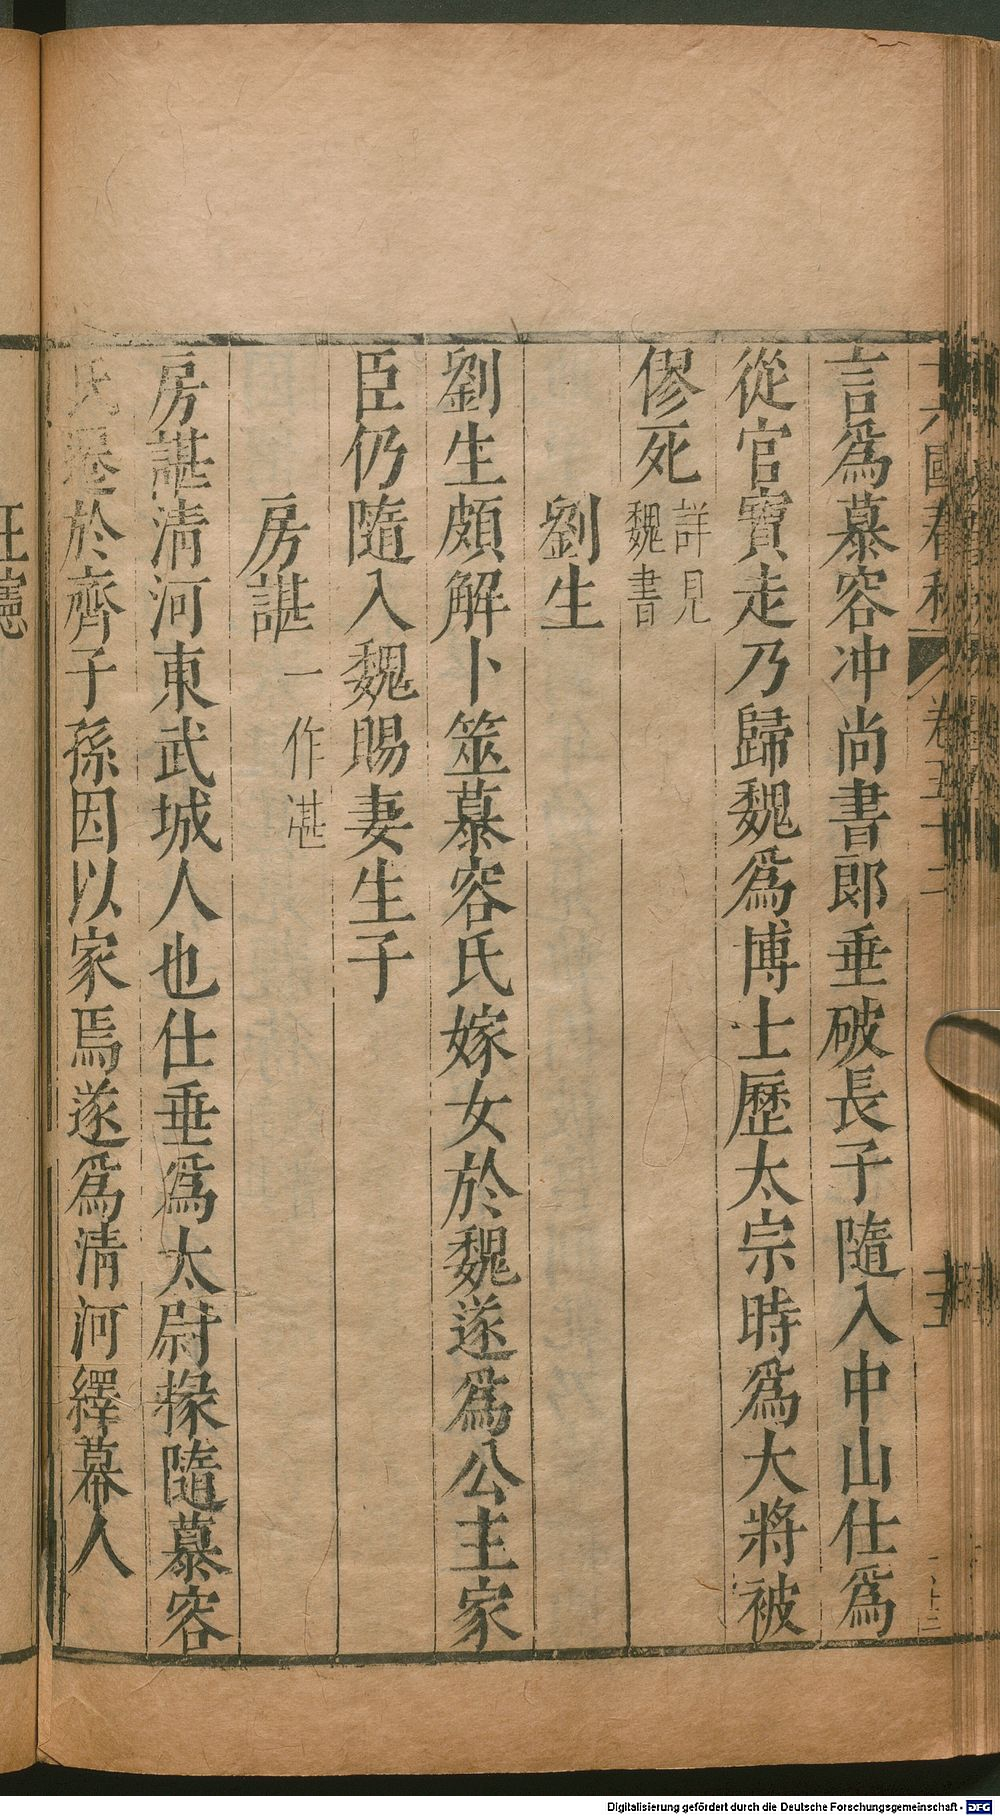 十六國春秋 卷五十二 十五
言爲慕容冲尚書郎垂破長子隨入中山仕爲
從官寶走乃歸魏爲博士歷太宗時爲大將被
僇死詳見魏書
劉生
劉生頗解卜筮慕容氏嫁女於魏遂爲公主家
臣仍隨入魏賜妻生子
房諶一作湛
房諶清河東武城人也仕垂爲太尉掾隨慕容
氏遷於齊子孫因以家焉遂爲清河繹幕人
Digitalisierung gefördert durch die Deutsche Forschungsgemeinschaft - DFG